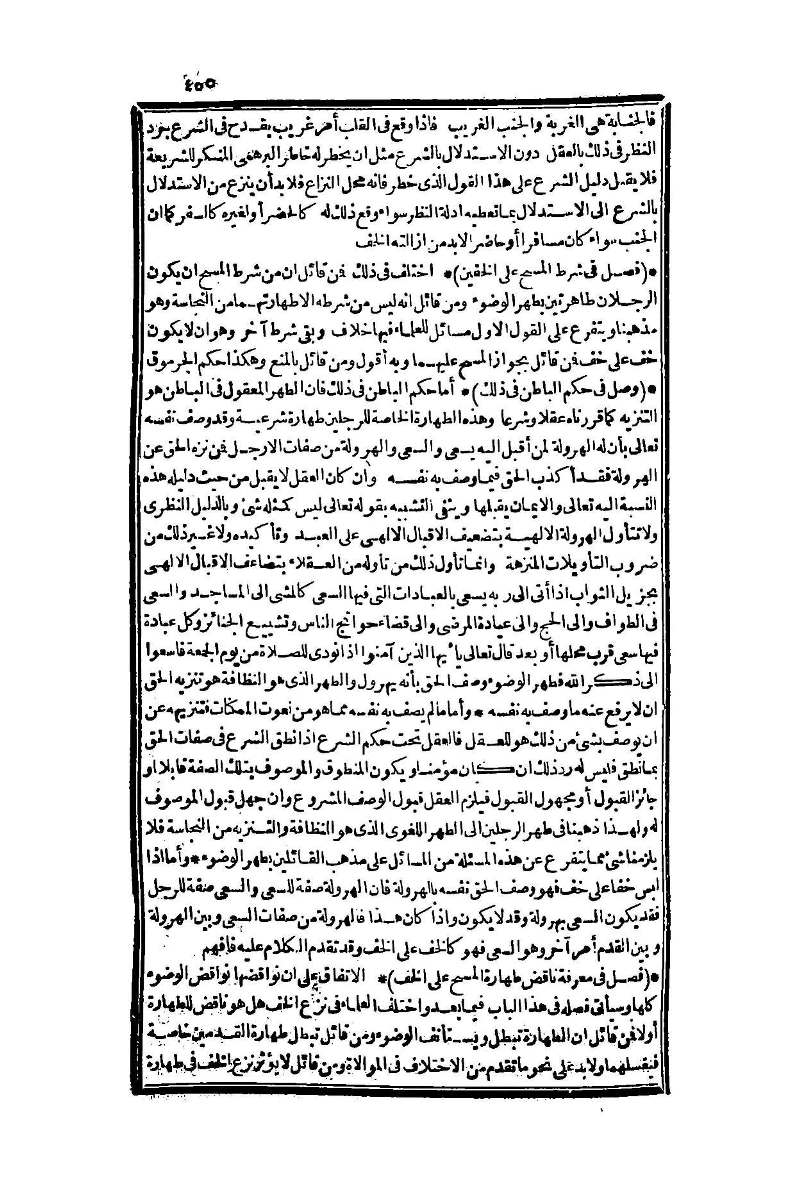 ٤٥٥
فالجنابة هى الغربة والجنب الغريب فاذا وقع فى القلب أمر غريب يقدح فى الشرع بجرد
النظر فى ذلك بالعقل دون الاستدلال بالشرع مثل ان يخطر له خاطر البرهمى المنكر للشريعة
فلا يقبل دليل الشرع على هذا القول الذى خطر فانه محل النزاع فلا بد أن ينزع من الاستدلال
بالشرع الى الاستدلال بما تعطيه ادلة النظر سواء وقع ذلك له كالحضر أو لغيره كالسفر كما ان
الجنب سواء كان مسافرا أو حاضرا لا بد من ازالته الخف
*(فصل فى شرط المسح على الخفين)* اختلف فى ذلك فمن قائل ان من شرط المسح ان يكون
الرجلان طاهرتين بطهر الوضوء ومن قائل انه ليس من شرطه الا طهارتهما من النجاسة وهو
مذهبنا ويتفرع على القول الاول مسائل للعلماء فيها خلاف وبقى شرط آخر وهو ان لا يكون
خف على خف فمن قائل بجواز المسح عليهما وبه أقول ومن قائل بالمنع وهكذا حكم الجرموق
*(وصل فى حكم الباطن فى ذلك)* أما حكم الباطن فى ذلك فان الطهر المعقول فى الباطن هو
التنزيه كما قررناه عقلا وشرعا وهذه الطهارة الخاصة للرجلين طهارة شرعية وقد وصف نفسه
تعالى بأن له الهرولة لمن أقبل اليه يسعى والسعى والهرولة من صفات الارجل فمن نزه الحق عن
الهرولة فقد أكذب الحق فيما وصف به نفسه وان كان العقل لا يقبل من حيث دليله هذه
النسبة اليه تعالى والايمان يقبلها وينفى التشبيه بقوله تعالى ليس كمثله شئ وبالدليل النظرى
ولا تتأول الهرولة الالهية بتضعيف الاقبال الالهى على العبد وتأكيده ولا غير ذلك من
ضروب التأويلات المنزهة وانما تأول ذلك من تأوله من العقلاء بتضاعف الاقبال الالهى
بجزيل الثواب اذا أتى الى ربه يسعى بالعبادات التى فيها السعى كالمشى الى المساجد والسعى
فى الطواف والى الحج والى عيادة المرضى والى قضاء حوائج الناس وتشييع الجنائز وكل عبادة
فيها سعى قرب محلها أو بعد قال تعالى يا أيها الذين آمنوا اذا نودى للصلاة من يوم الجمعة فاسعوا
الى ذكر الله فطهر الوضوء وصف الحق بأنه يهرول والطهر الذى هو النظافة هو تنزيه الحق
ان لا يرفع عنه ما وصف به نفسه * وأما ما لم يصف به نفسه مما هو من نعوت الممكنات فتنزيهه عن
ان يوصف بشئ من ذلك هو للعقل فالعقل تحت حكم الشرع اذا نطق الشرع فى صفات الحق
بما نطق فليس له رد ذلك ان كان مؤمنا ويكون المنطوق والموصوف بتلك الصفة قابلا او
جائز القبول أو مجهول القبول فيلزم العقل قبول الوصف المشروع وان جهل قبول الموصوف
له ولهذا ذهبنا فى طهر الرجلين الى الطهر اللغوى الذى هو النظافة والتنزيه من النجاسة فلا
يلزمنا شئ مما يتفرع عن هذه المسئلة من المسائل على مذهب القائلين بطهر الوضوء * وأما اذا
لبس خفا على خف فهو وصف الحق نفسه بالهرولة فان الهرولة صفة للسعى والسعى صفة للرجل
فقد يكون السعى بهرولة وقد لا يكون واذا كان هذا فالهرولة من صفات السعى وبين الهرولة
وبين القدم أمر آخر وهو السعى فهو كالخف على الخف وقد تقدم الكلام عليه فافهم
*(فصل فى معرفة ناقض طهارة المسح على الخف)* الاتفاق على ان نواقضها نواقض الوضوء
كلها وسيأتى فصله فى هذا الباب فيما بعد واختلف العلماء فى نزع الخف هل هو ناقض للطهارة
أولا فمن قائل ان الطهارة تبطل ويستأنف الوضوء ومن قائل تبطل طهارة القدمين خاصة
فيغسلهما ولا بد على نحو ما تقدم من الاختلاف فى الموالاة ومن قائل لا يؤثر نزع الخف فى طهارة